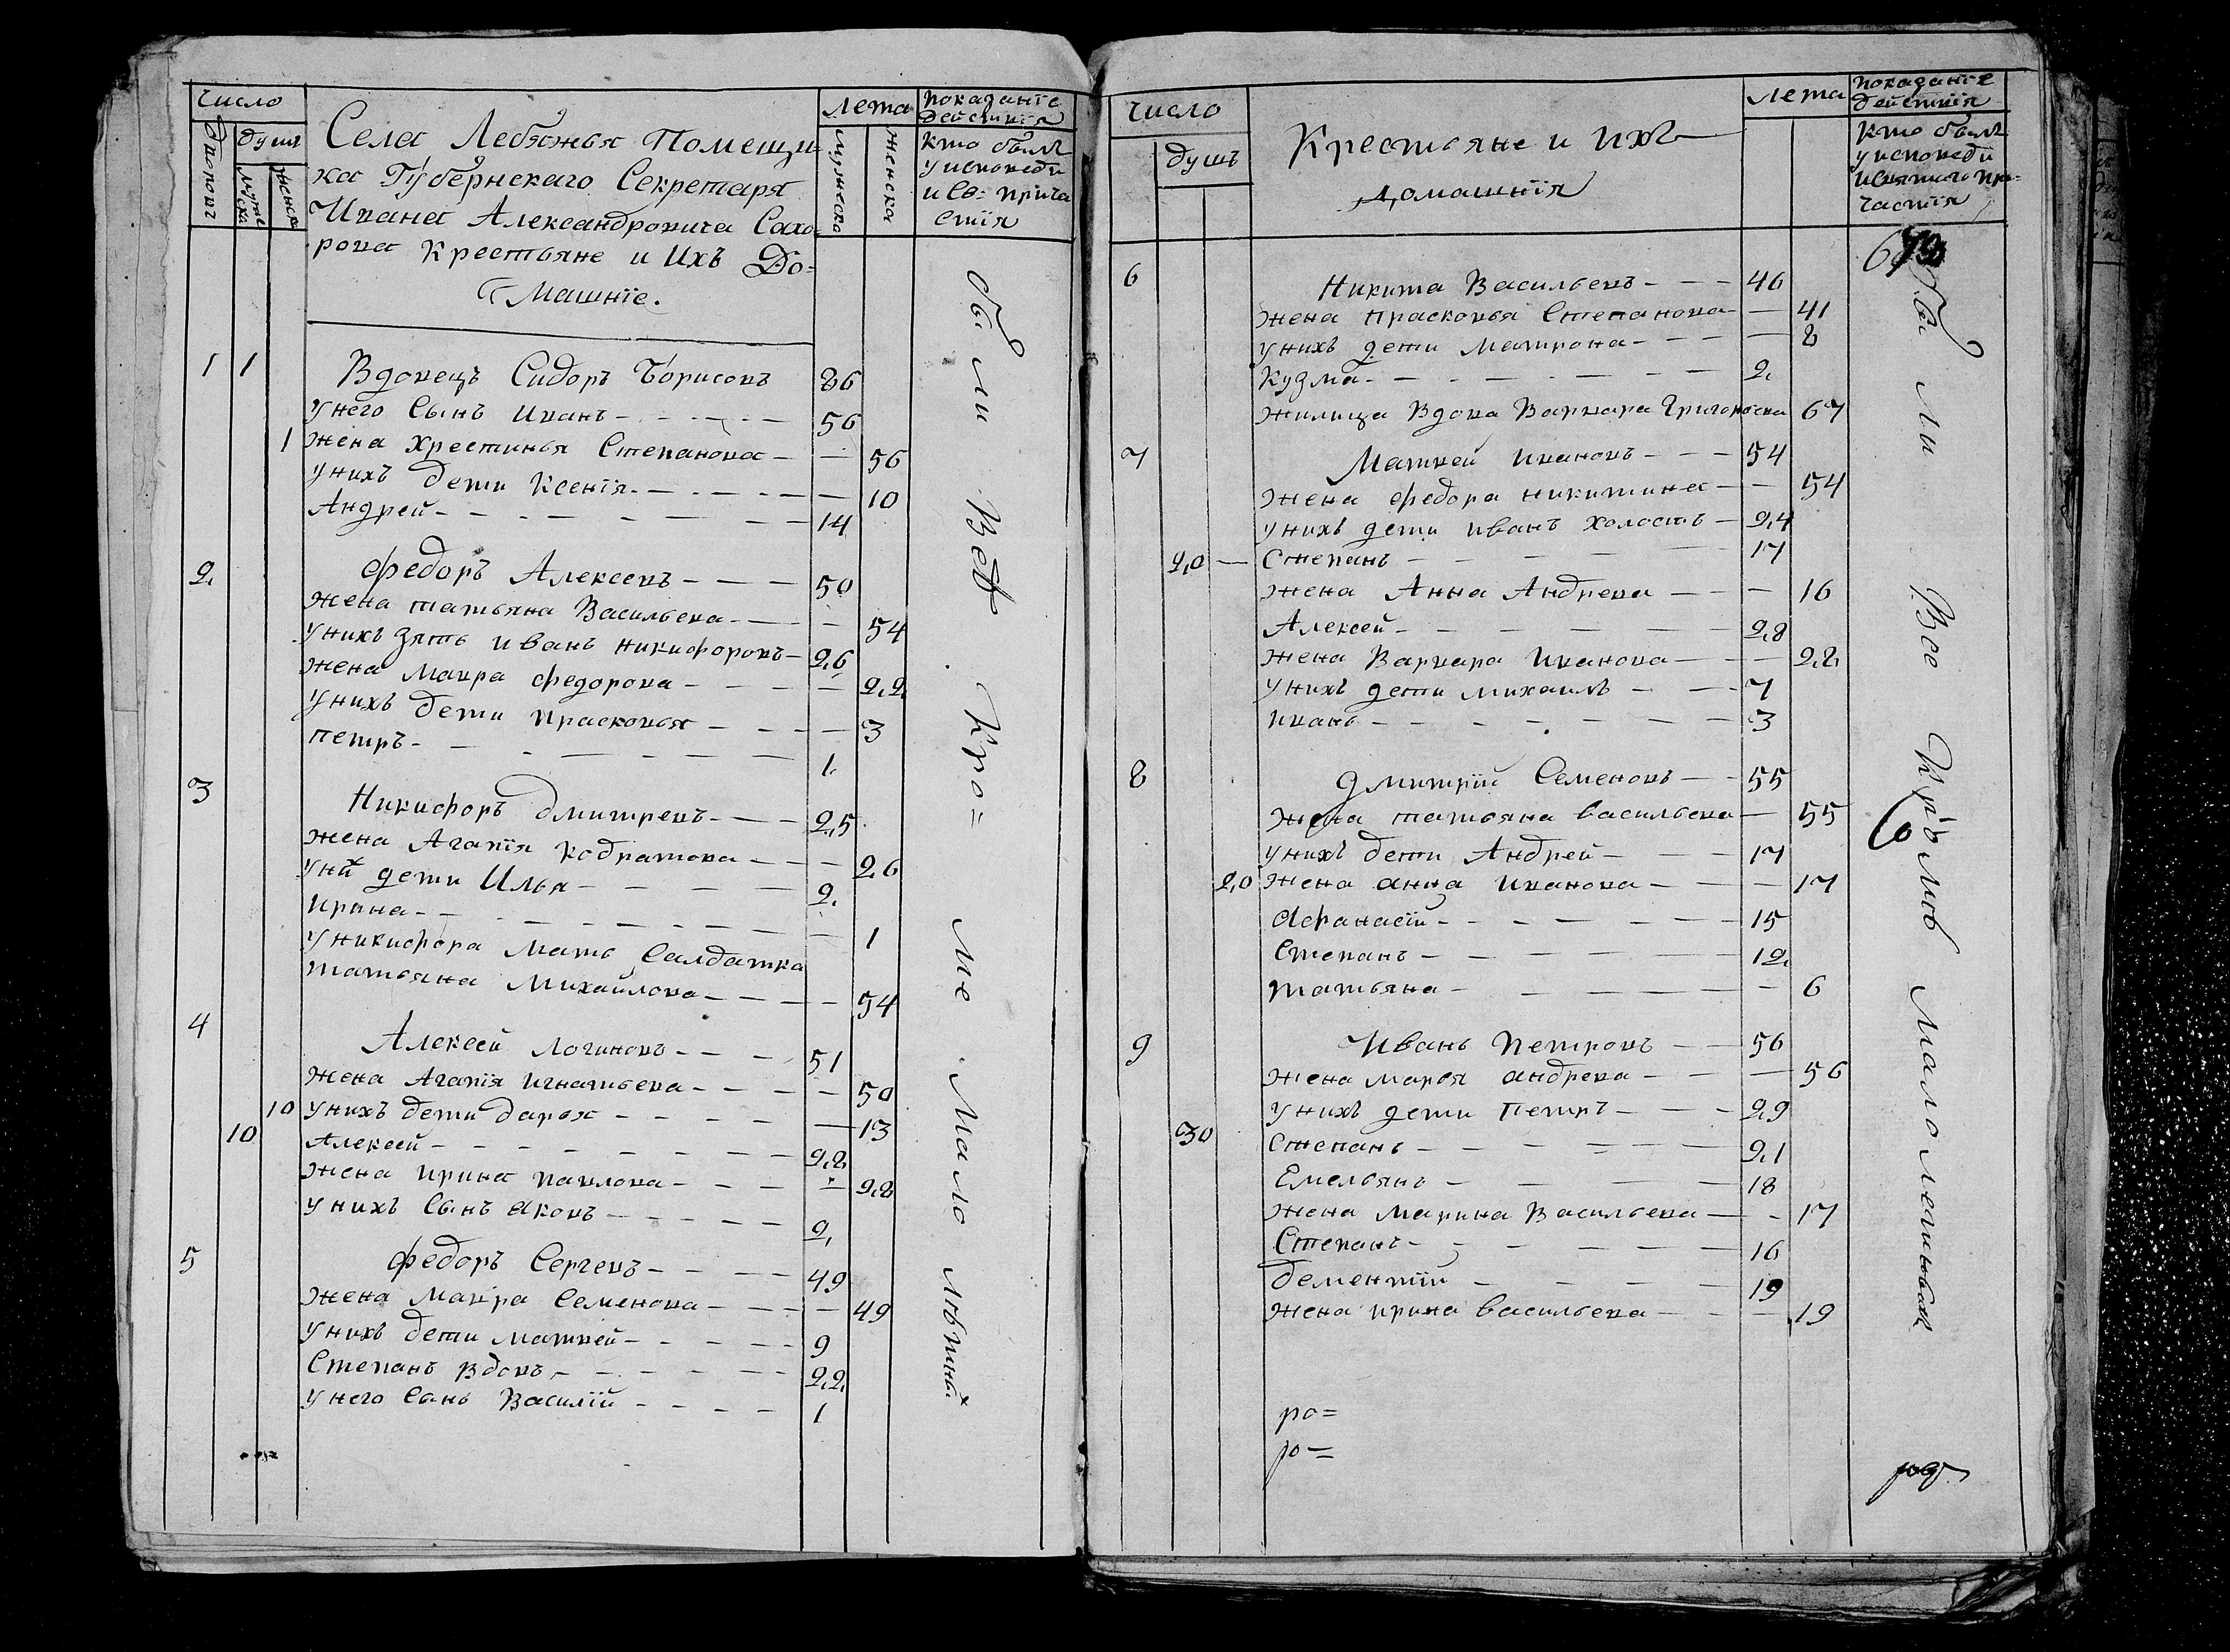 Число
Домовъ
душъ
мужеска
женска
Села Лебяжья Помещи=
ка Губернскаго Секретаря
Ивана Александровича Сахо=
рова Крестьяне и Ихъ До=
машніе.
Лета
мужеска
женска
показаніе
действия
кто былъ
у исповеди
и Св: прича
стія
1 1 Вдовецъ Сидоръ Борисовъ 86
у него Сынъ Иванъ 56
1 жена Хрестинья Степанова 56
у нихъ дети Ксенія 10
Андрей 14
2 Федоръ Алексевъ 50
жена татьяна Васильева 54
у нихъ зять иванъ никифоровъ 26
жена Мавра Федорова 22
у нихъ дети прасковья 3
петръ 1
3 Никифоръ Дмитревъ 25
жена Агапія кодратова 26
у них дети Илья 2
Ирина 1
у никифора Мать Салдатка
татьяна Михайлова 54
4 Алексей Логиновъ 51
жена Агапія игнатьева 50
10 у нихъ дети дарья 13
10 Алексей 28
жена ирина павлова 28
у нихъ Сынъ яковъ 2
5 Федоръ Сергевъ 49
жена Мавра Семенова 49
у нихъ дети матвей 9
Степанъ вдовъ 22
у него Сынъ Василій 1
были Все Кро=ме Мало летныхъ
Число
душъ
Крестьяне и ихъ
домашнія
лета
показаніе
действія
кто былъ
у исповеди
и святаго при=
частія
6 Никита Васильевъ 46
жена прасковья Степанова 41
у нихъ дети матрона 8
кузма 2
жилица вдова Варвара Григорьева 67
7 Матвей ивановъ 54
жена федора никитина 54
у нихъ дети иванъ холостъ 24
20 Степанъ 17
жена Анна Андрева 16
Алексей 28
жена Варвара иванова 28
у нихъ дети михаилъ 7
иванъ 3
8 Дмитрій Семеновъ 55
жена татьяна васильева 55
у нихъ дети Андрей 17
20 жена анна иванова 17
Афанасій 15
Степанъ 12
татьяна 6
9 Иванъ Петровъ 56
жена марья андрева 56
у нихъ дети Петръ 29
30 Степанъ 21
Емельянъ 18
жена Марина Васильева 17
Степанъ 16
дементій 19
жена ирина васильева 19
ро=
ро=
были Все Кроме малолетныхъ